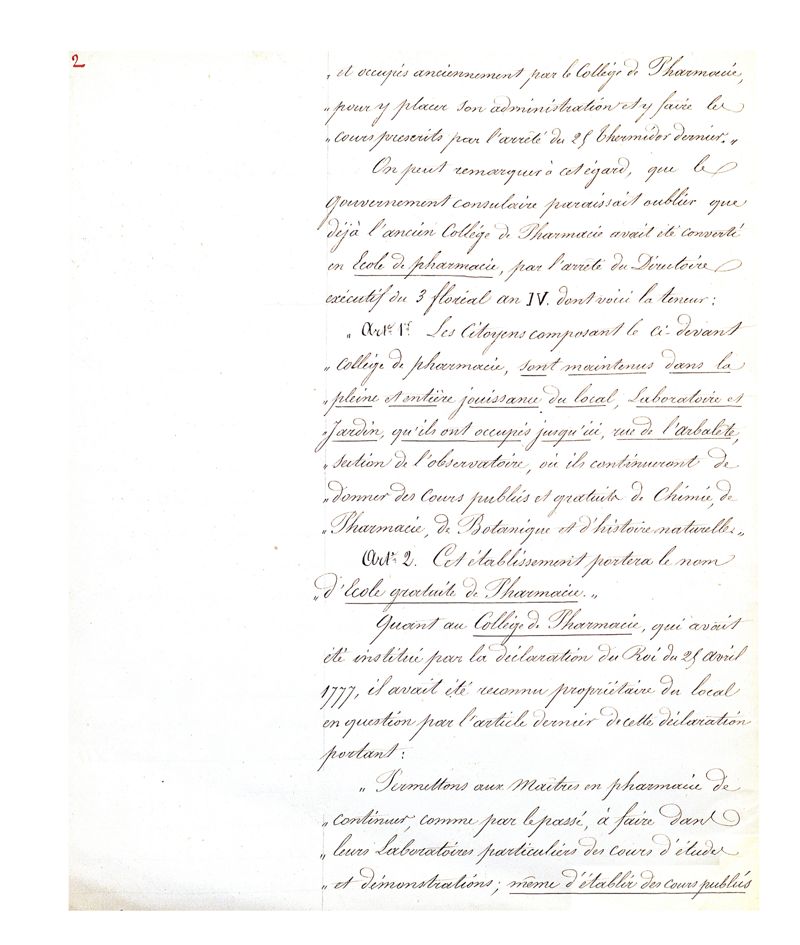 2
„ et occupés anciennement, par le Collége de Pharmacie,
„ pour y placer son administration et y faire les
„ cours prescrits par l'arrêté du 25 Thermidor dernier. „
On peut remarquer à cet égard, que le
Gouvernement consulaire paraissait oublier que
déjà l'ancien Collége de Pharmacie avait été converti
en Ecole de pharmacie, par l'arrêté du Directoire
exécutif du 3 floréal an IV. dont voici la teneur :
„ Art.er 1.er Les Citoyens composant le ci-devant
„ collége de pharmacie, sont maintenus dans la
„ pleine et entière jouissance du local, Laboratoire et
„ Jardin, qu'ils ont occupés jusqu'ici, rue de l'arbalete,
„ section de l'observatoire, où ils continuront de
„ donner des Cours publics et gratuits de Chimie, de
„ Pharmacie, de Botanique et d'histoire naturelle. „
Art.er 2. Cet établissement portera le nom
„ d'Ecole gratuite de Pharmacie. „
Quant au Collége de Pharmacie, qui avait
été institué par la déclaration du Roi du 25 avril
1777, il avait été reconnu propriétaire du local
en question par l'article dernier de cette déclaration
portant :
„ Permettons aux Maîtres en pharmacie de
„ continuer, comme par le passé, à faire dans
„ leurs Laboratoires particuliers des cours d'études
„ et démonstrations ; même d'établir des cours publics